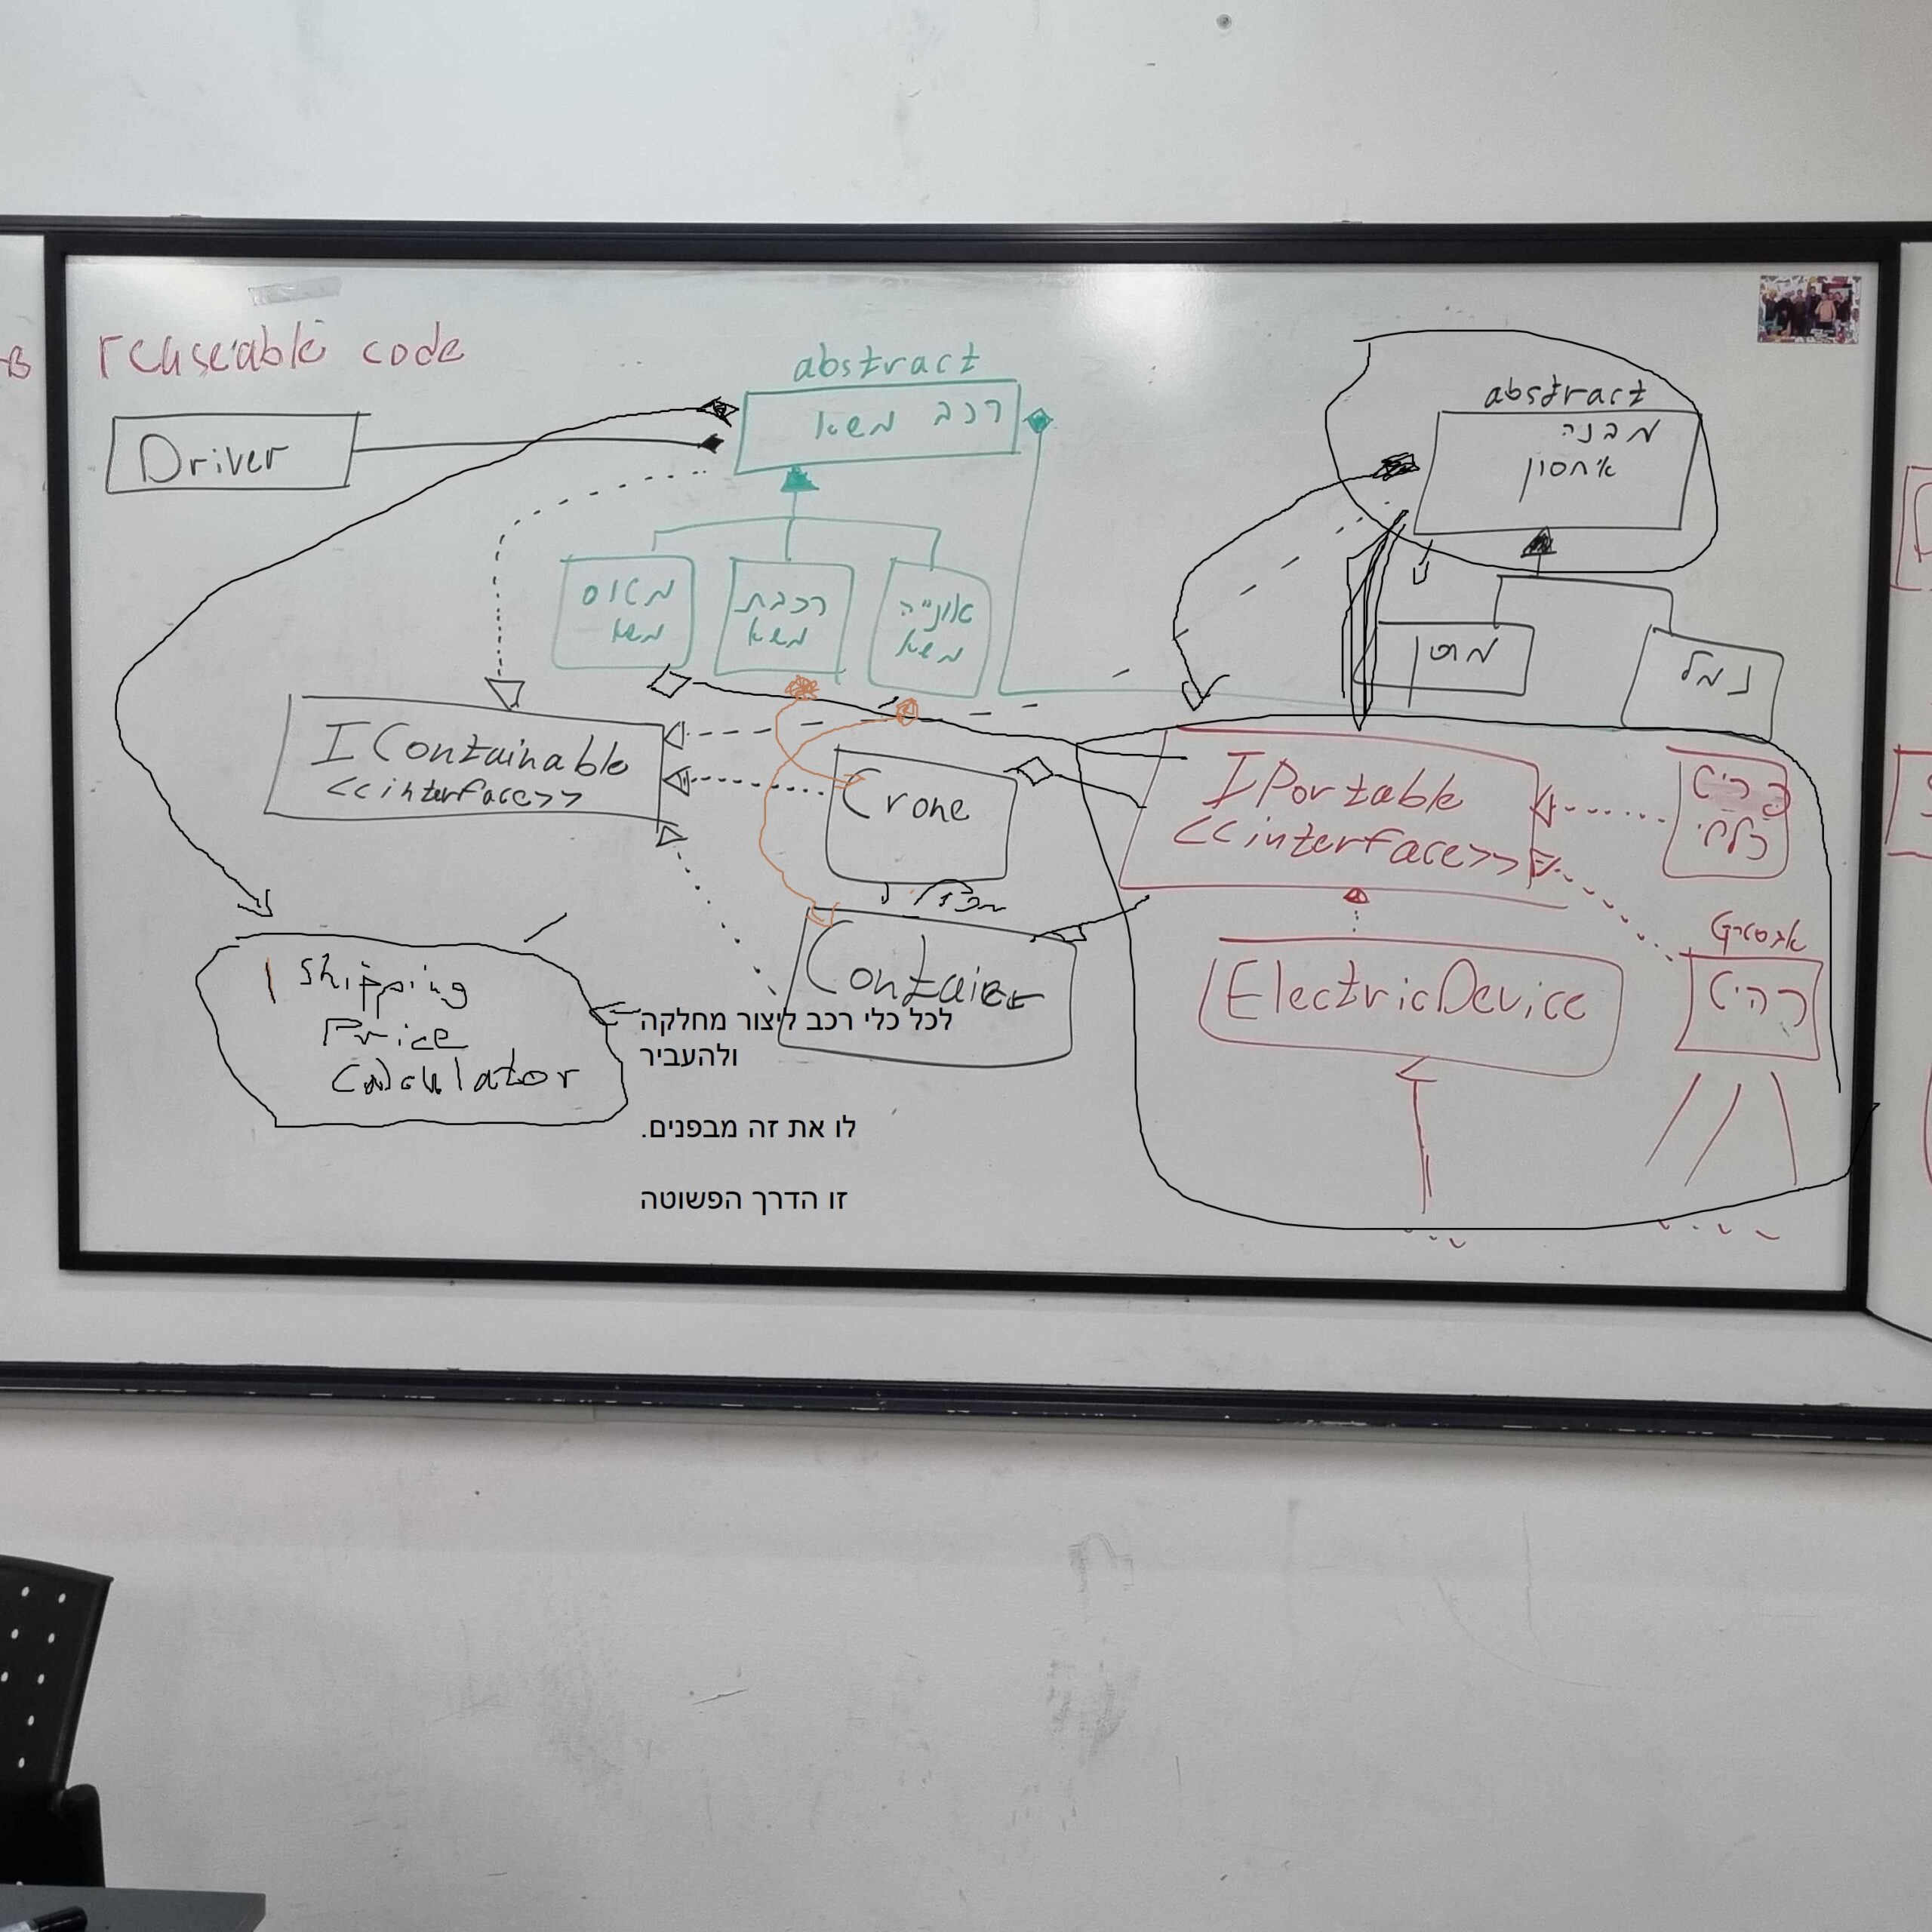 reuseable code
Driver
abstract
רכב משא
abstract
מבנה
איחסון
מטוס
משא
רכבת
משא
אונייה
משא
מחסן
נמל
IContainable
<<interface>>
Crone
IPortable
<<interface>>
פריט
כללי
Contaier
ElectricDevice
אבסטרקט
רהיט
Shipping
Price
Calculator
לכל כלי רכב ליצור מחלקה
ולהעביר
לו את זה מבפנים.
זו הדרך הפשוטה